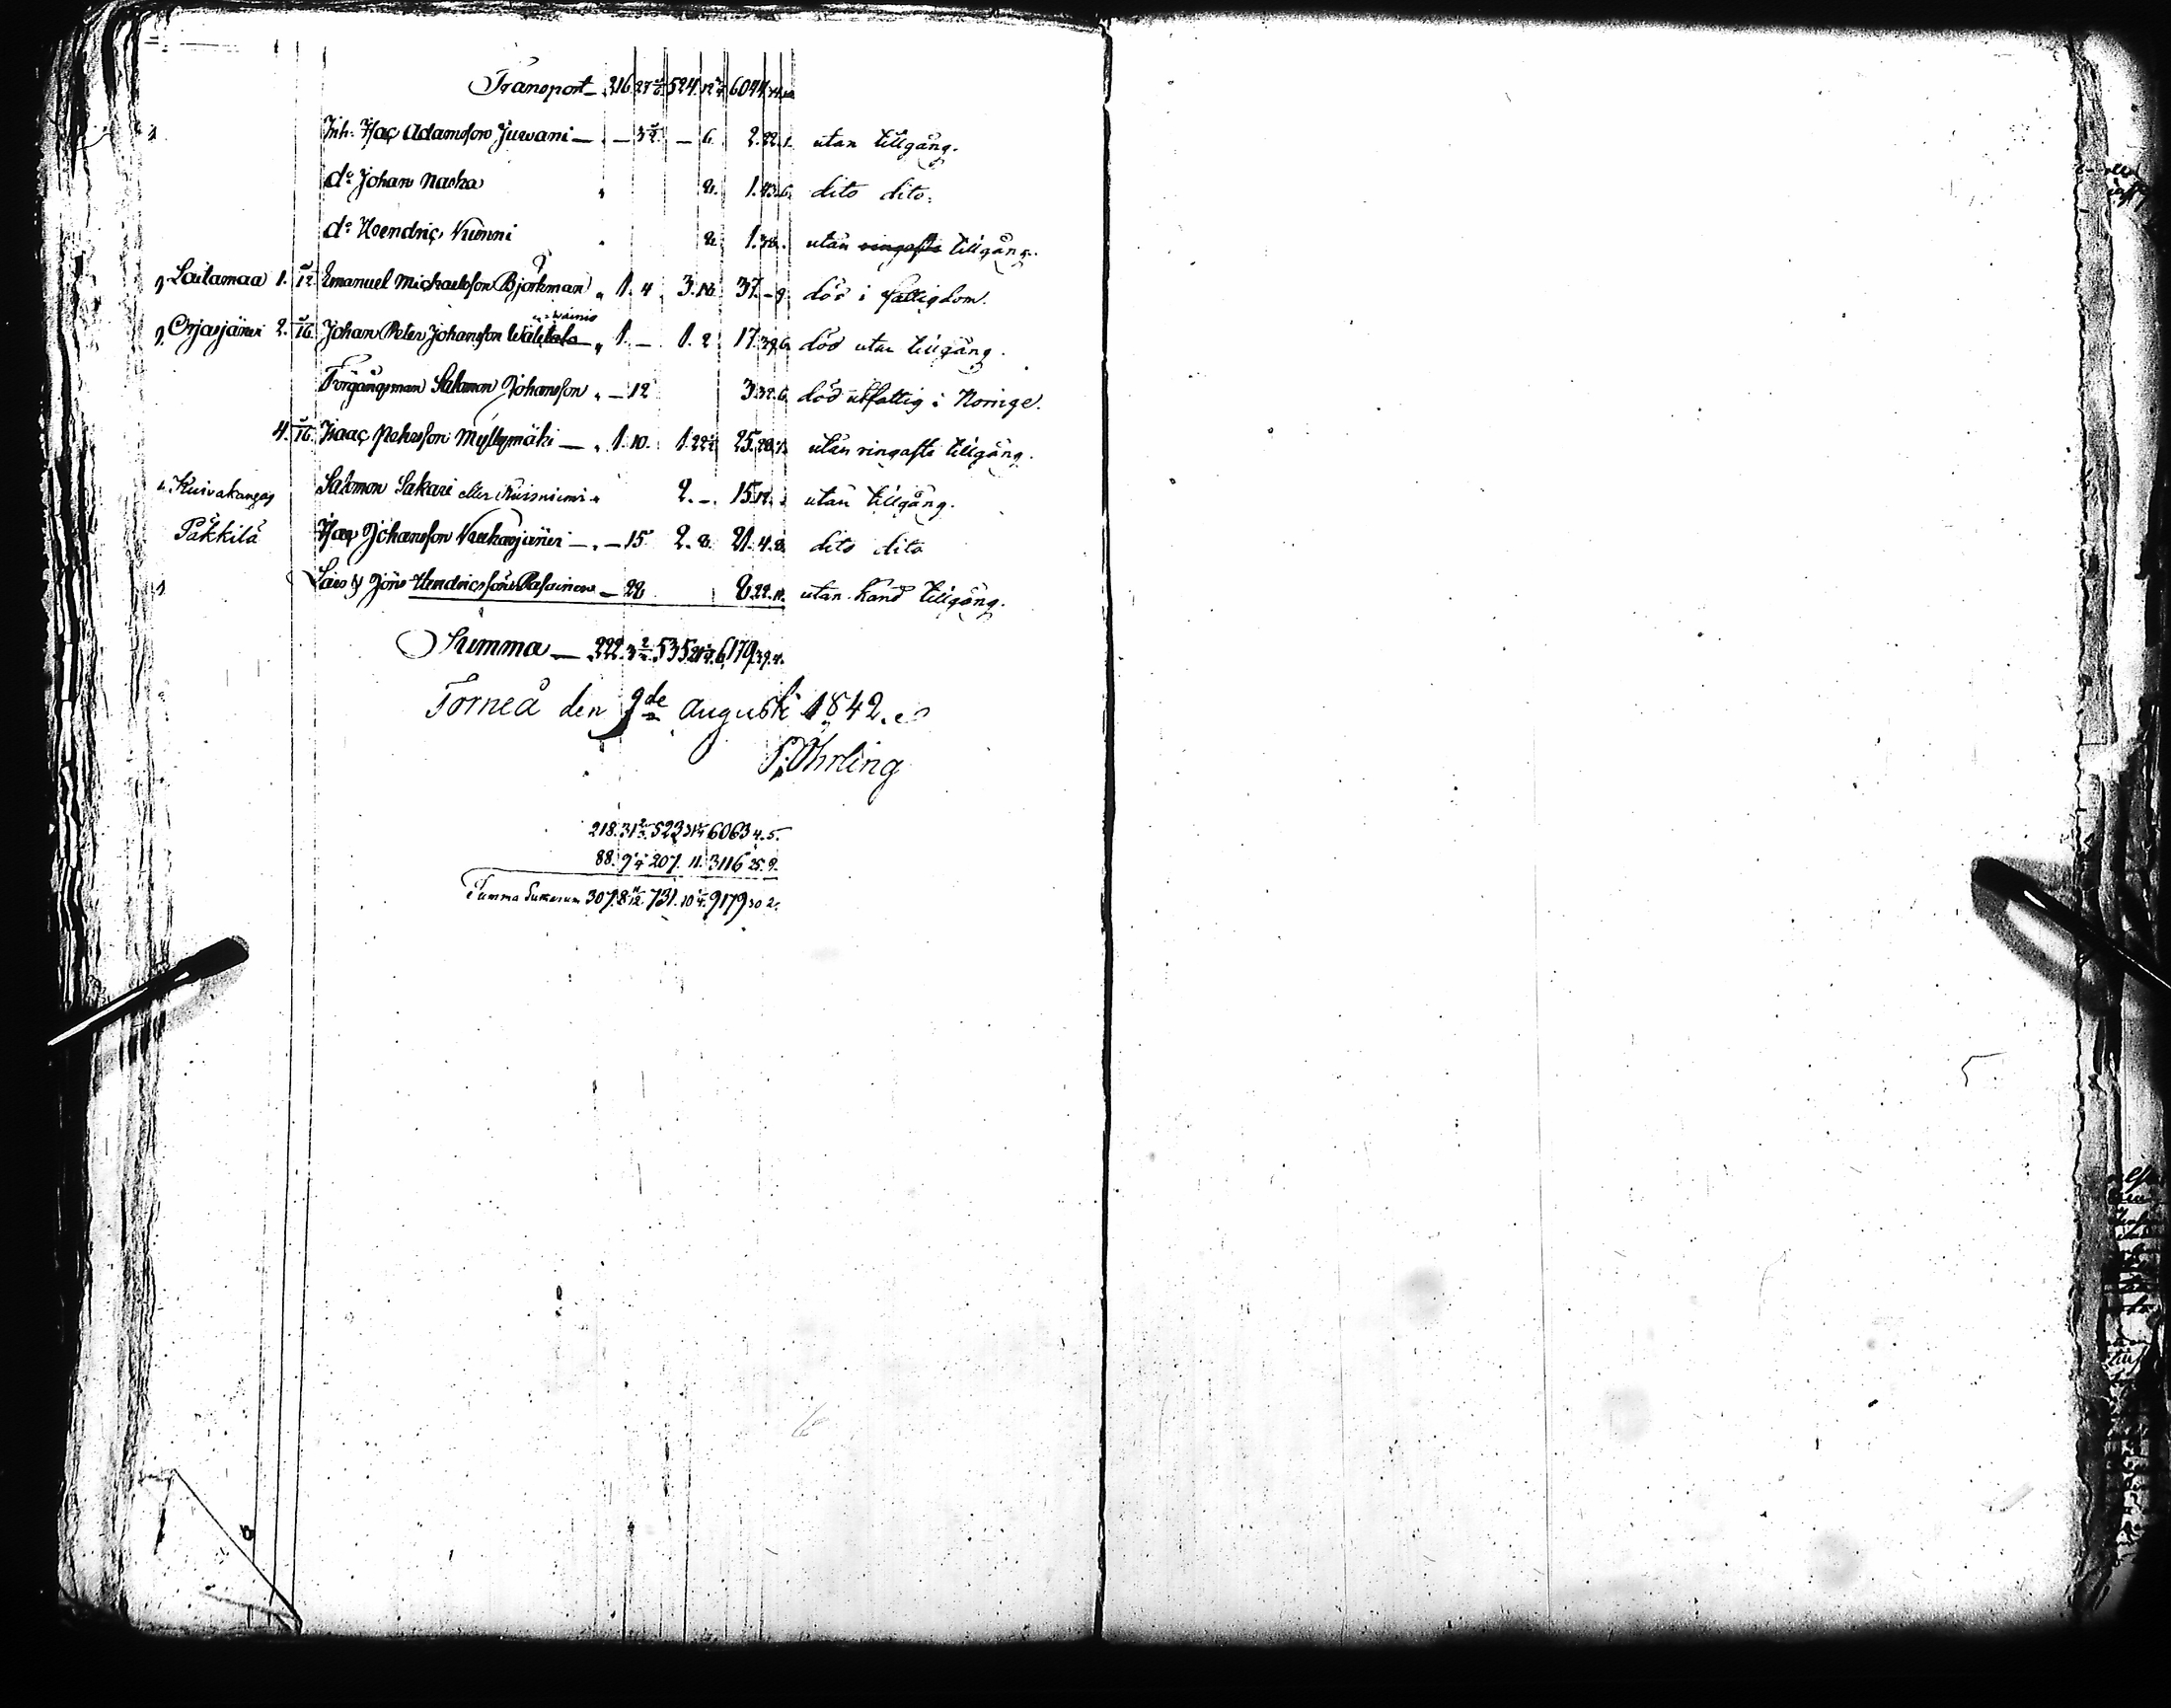 Transport — 216. 27 524. 6094.
Inh: Isac Adamsson Juwani — — 3½. — 6. 2.22.1. utan tillgång.
do Johan Naska 8. 1.43.6. dito dito.
do Hendric Vuenni 8. 1.38. utan ringaste tillgång.
Laitamaa 1. 5/12 Emanuel Michaelsson Björkman 1. 4 3.16 37.-9. död i fattigdom.
Orjasjärvi 2. 5/16. Johan Peter Johansson Wäli 1. —. 1. 2 17.39.6. död utan tillgång.
Förgångsman Salomon Johansson — 12 3.32.6. död utfattig i Norrige.
4. 5/16. Isaac Petersson Myllymäki — 1. 10. 1. 25. utan ringaste tillgång.
Kuivakangas Salomon Sakari eller Kuisniemi 2. —. 15. utan tillgång.
Päkkilä Isac Johansson Vaskasjärvi — — 15 2. 8. 21.4.8. dito dito
Lars & Jöns Hendricssöner — 28 8.22. utan känd tillgång.
Summa — 222.3 535 6,179,39.
Torneå den 9de augusti 1842.
P. Öhrling
218.31 523 6063 4.5.
88. 9¼ 207. 11. 3116 25.9.
Summa Summarum 307.8 731. 10 9179 30 2.